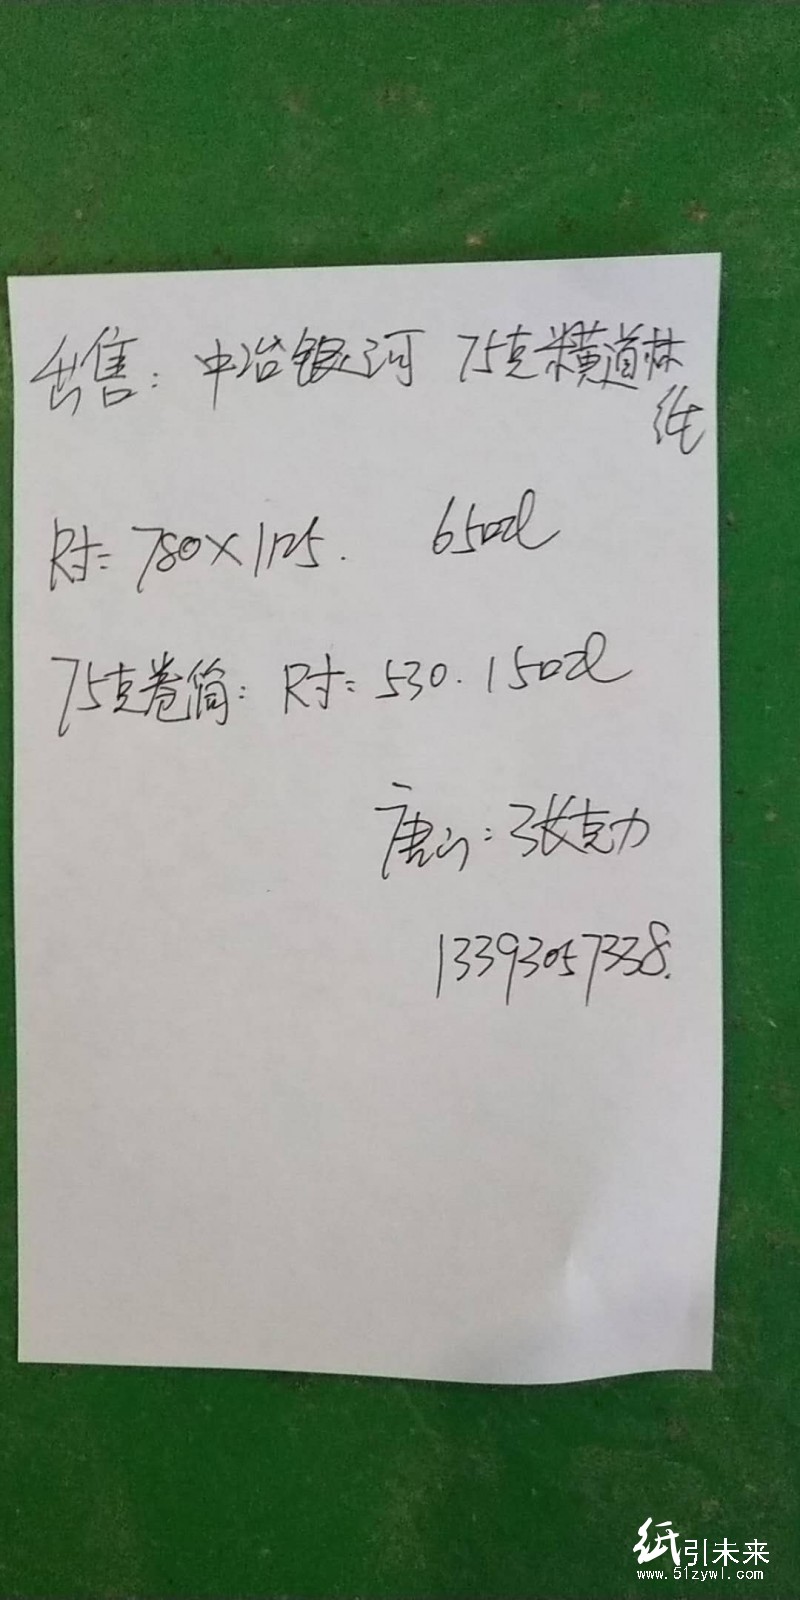 出售：中冶银河 75克米黄道林
纸
尺寸：780×1125. 650吨
75克卷筒：尺寸：530. 150吨
唐山：张克力
13393057338.
纸引未来
www.51zywl.com